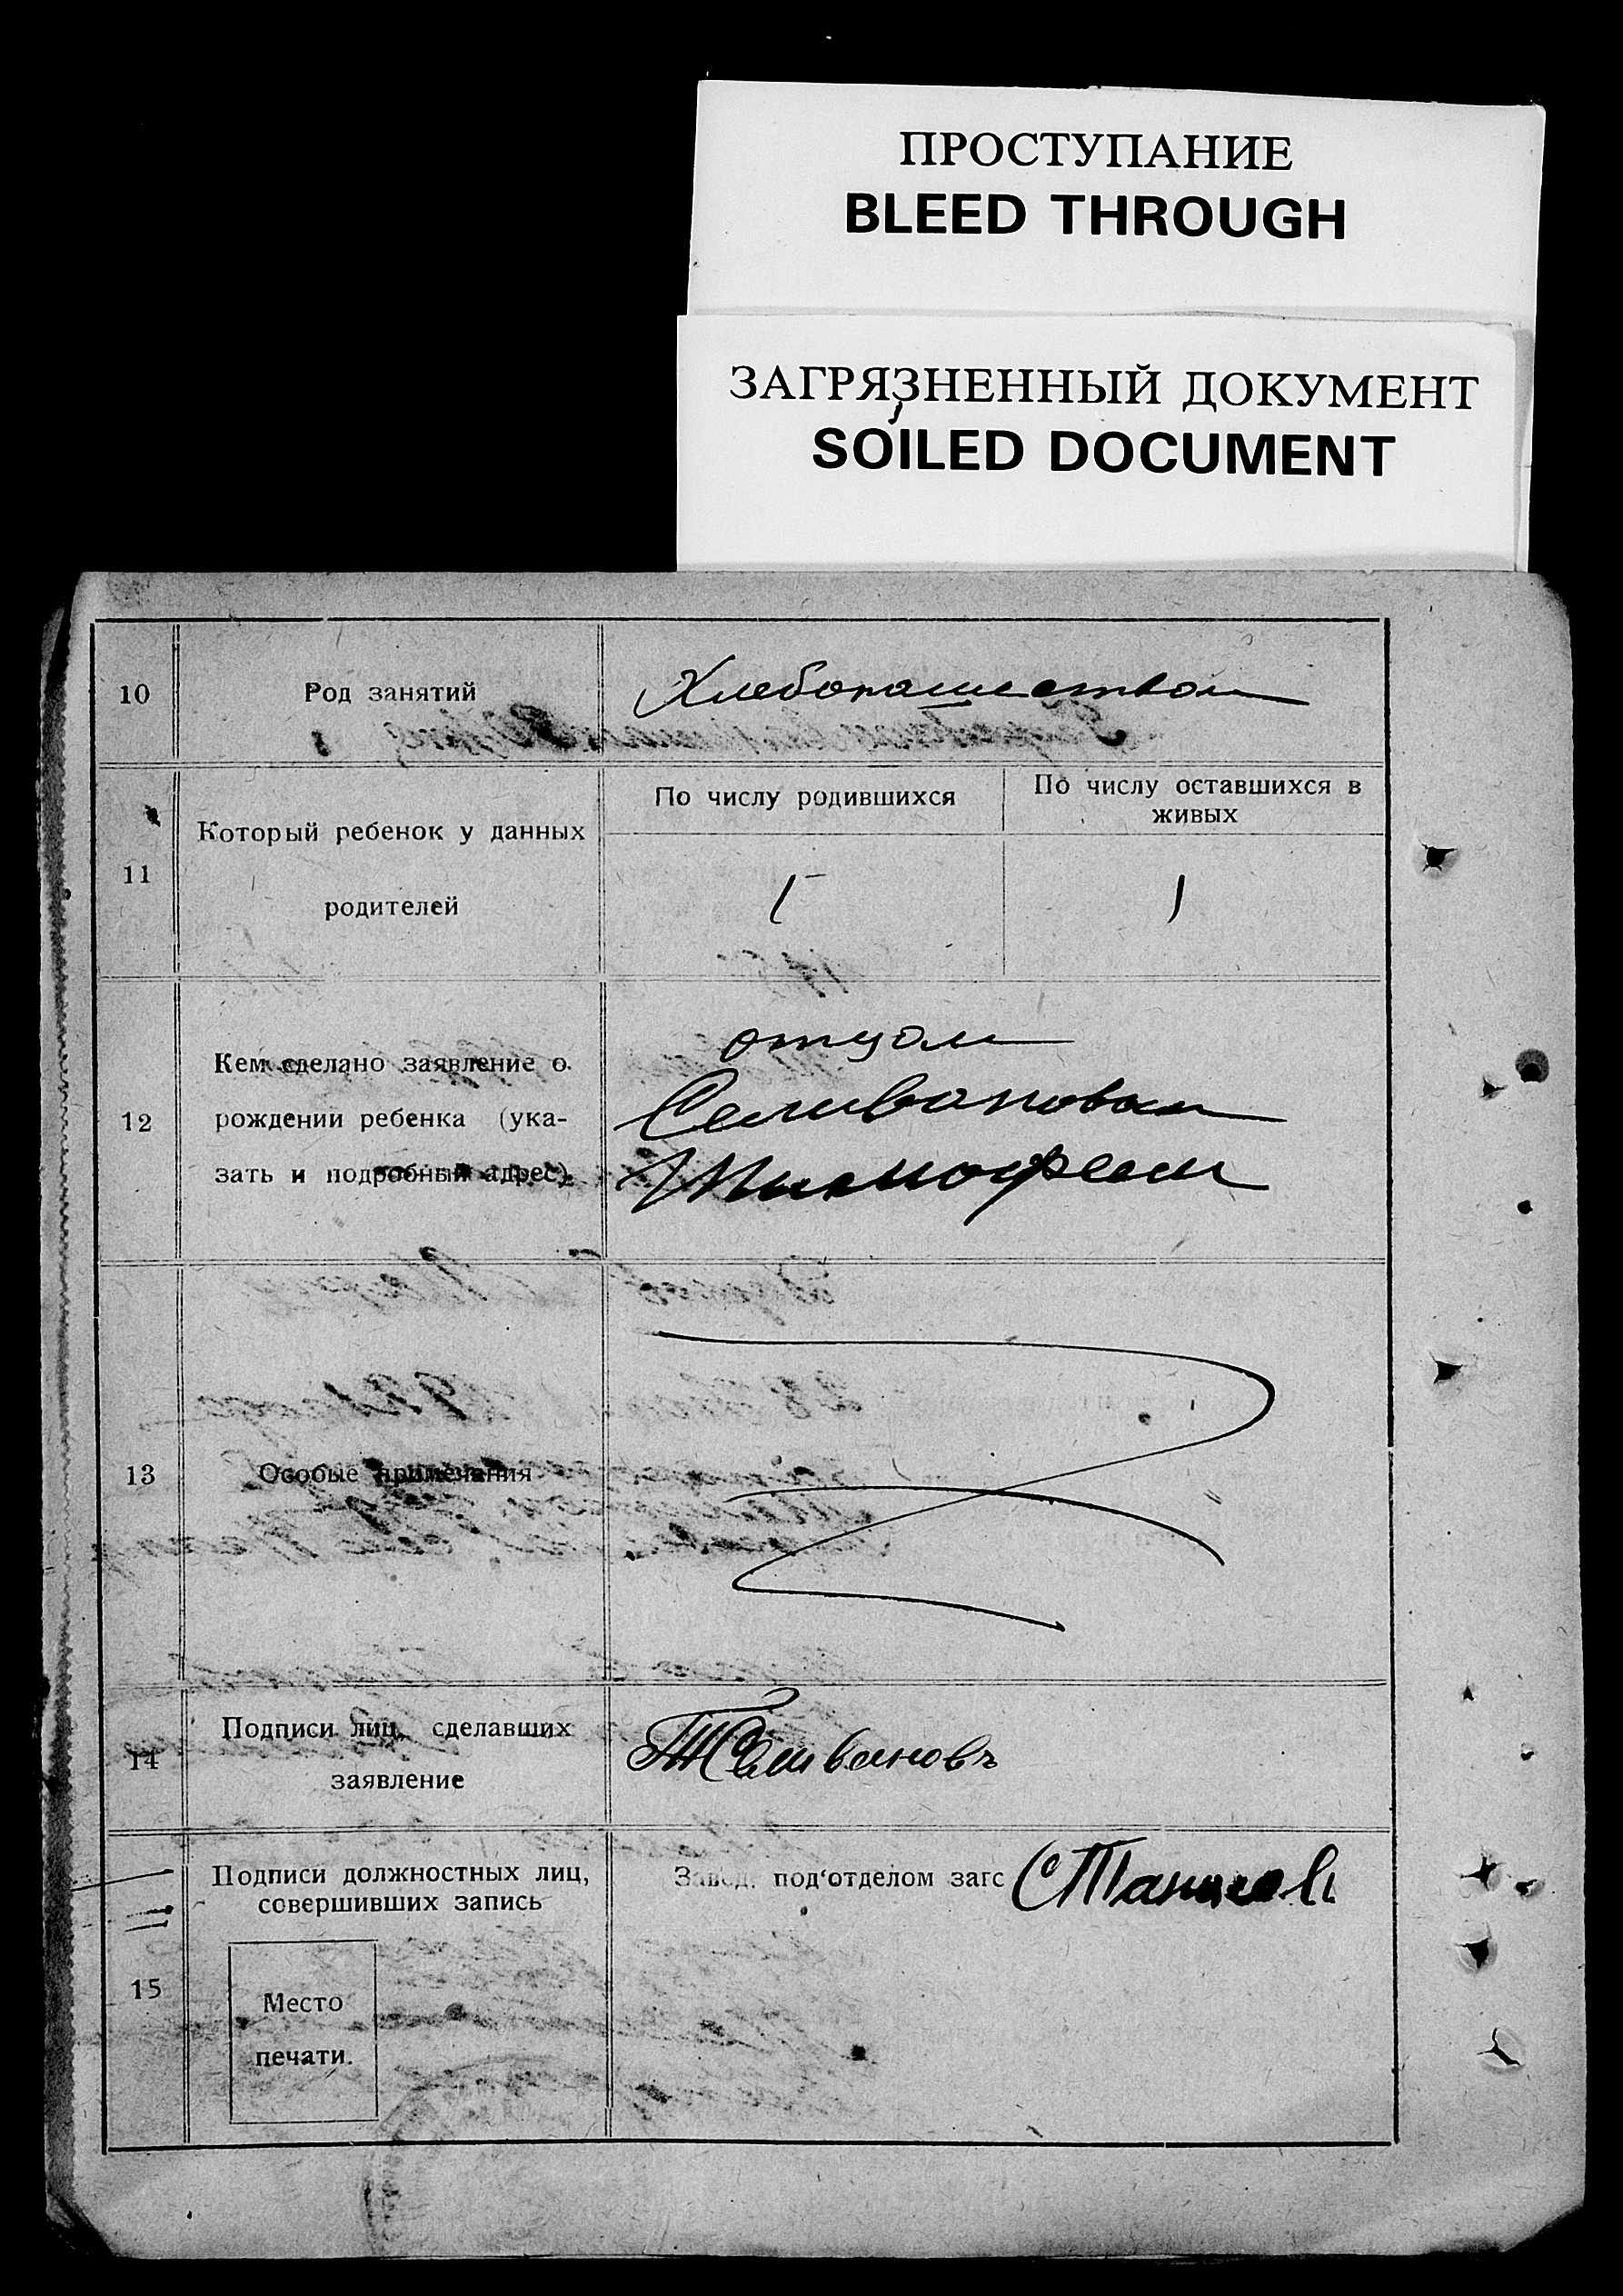 ПРОСТУПАНИЕ
BLEED THROUGH
ЗАГРЯЗНЕННЫЙ ДОКУМЕНТ
SOILED DOCUMENT
10
Род занятий
Хлебопашеством
11
Который ребенок у данных
родителей
По числу родившихся
По числу оставшихся в
живых
1
12
Кем сделано заявление о
рождении ребенка (ука-
зать и подробный адрес).
отцом
Селивановым
Тимофеем
13
Особые примечания
14
Подписи лиц, сделавших
заявление
Т Селивановъ
15
Подписи должностных лиц,
совершивших запись
Место
печати.
Завед. под‘отделом загс